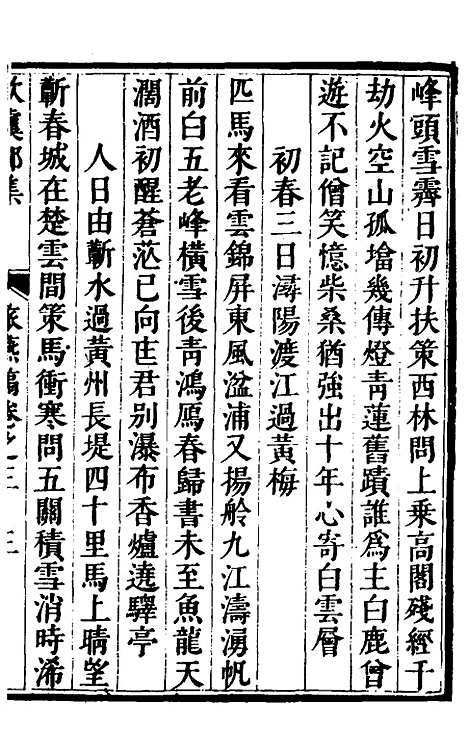 峰頭雪霽日初升扶策西林問上乗高閣殘經千
劫火空山孤塔幾傳燈靑蓮舊蹟誰爲主白鹿曾
遊不記僧笑憶柴桑猶強出十年心寄白雲層
初春三日潯陽渡江過黃梅
匹馬來看雲錦屏東風湓浦又揚舲九江濤湧帆
前白五老峰橫雪後靑鴻鴈春歸書未至魚龍天
濶酒初醒蒼茫已向匡君別瀑布香爐遶驛亭
人日由蘄水過黃州長堤四十里馬上晴望
蘄春城在楚雲間策馬衝寒問五關積雪消時浠
集
卷之三 三